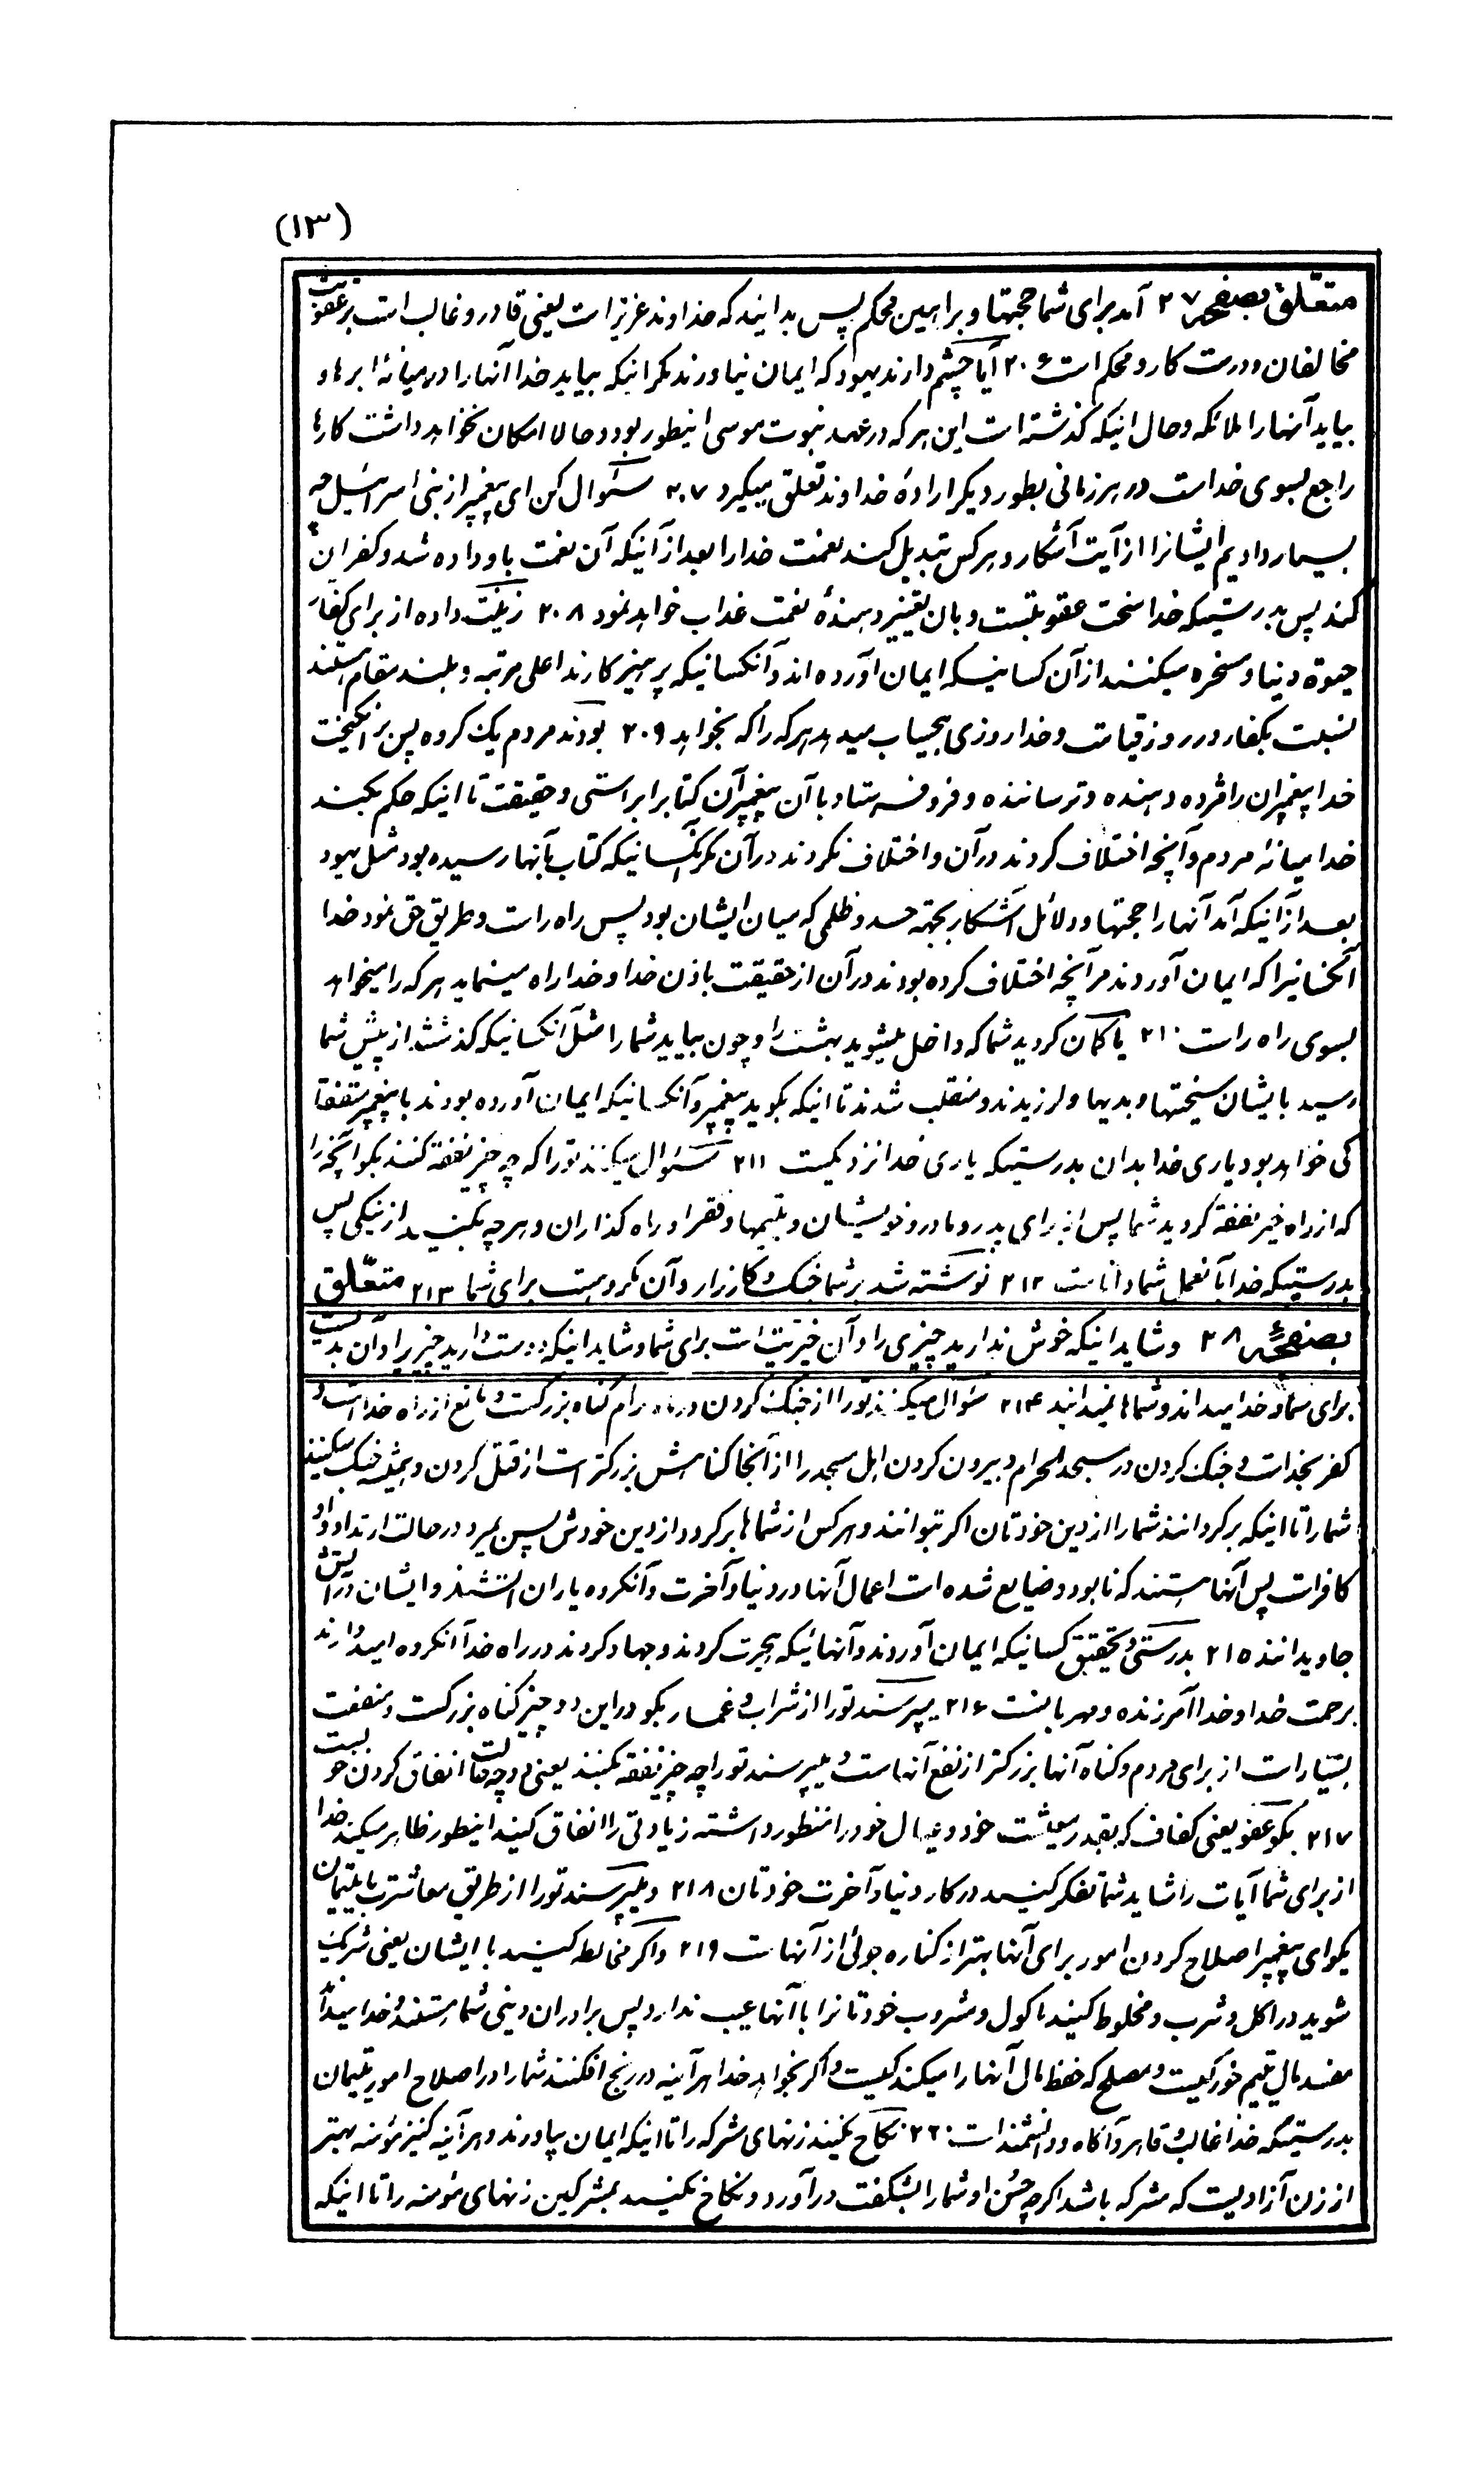 (۱۳)
متعلّق بصفحه ۲۷ آمد برای شما حجتها و براهین محکم پس بدانید که خداوند عزیز است یعنی قادر و غالب است بر عقوبت
مخالفان و درست کار و محکم است ۲۰۶ آیا چشم دارند یهود که ایمان نیاورند مگر اینکه بیاید خدا آنها را در میانهٔ ابرها و
بیاید آنها را ملائکه و حال اینکه گذشته است این هر که در عهد نبوت موسی اینطور بود و حالا امکان نخواهد داشت کارها
راجع بسوی خداست در هر زمانی بطور دیگر ارادهٔ خداوند تعلق میگیرد ۲۰۷ سئوال کن ای پیغمبر از بنی اسرائیل چه
بسیار دادیم ایشانرا از آیت آشکار و هر کس تبدیل کند نعمت خدا را بعد از آنیکه آن نعمت باو داده شد و کفران
کند پس بدرستیکه خدا سخت عقوبتست و بان تغییر دهندهٔ نعمت عذاب خواهد نمود ۲۰۸ زینت داده از برای کفار
حیوة دنیا و مسخره میکنند از آن کسانیکه ایمان آورده اند و آنکسانیکه پرهیزکارند اعلی مرتبه و بلند مقام هستند
نسبت بکفار در روز قیامت و خدا روزی بیحساب میدهد هر که را که بخواهد ۲۰۹ بودند مردم یک گروه پس برانگیخت
خدا پیغمبران را مژده دهنده و ترساننده و فرو فرستاد با آن پیغمبران کتابرا براستی و حقیقت تا اینکه حکم بکند
خدا میانهٔ مردم و آنچه اختلاف کردند در آن و اختلاف نکردند در آن مگر آنکسانیکه کتاب بآنها رسیده بود مثل یهود
بعد از آنیکه آمد آنها را حجتها و دلائل آشکار بجهته حسد و ظلمی که میان ایشان بود پس راه راست و طریق حق نمود خدا
آنکسانیرا که ایمان آوردند مر آنچه اختلاف کرده بودند در آن از حقیقت باذن خدا و خدا راه مینماید هر که را میخواهد
بسوی راه راست ۲۱۰ یا گمان کردید شما که داخل میشوید بهشت را و چون بیاید شما را مثل آنکسانیکه گذشتند از پیش شما
رسید بایشان سختیها و بدیها و لرزیدند و منقلب شدند تا اینکه بگوید پیغمبر و آنکسانیکه ایمان آورده بودند با پیغمبر متفقا
کی خواهد بود یاری خدا بدان بدرستیکه یاری خدا نزدیکست ۲۱۱ سئوال میکنند تو را که چه چیز نفقه کنند بگو آنچه را
که از راه خیر نفقه کردید شما پس از برای پدر و مادر و خویشان و یتیمها و فقرا و راه گذاران و هر چه بکنید از نیکی پس
بدرستیکه خدا بآن عمل شما داناست ۲۱۲ نوشته شد بر شما جنگ و کارزار و آن مکروهست برای شما ۲۱۳ متعلّق
بصفحه ۲۸ و شاید اینکه خوش ندارید چیزی را و آن خیریت است برای شما و شاید اینکه دوست دارید چیزیرا و آن بدیست
برای شما و خدا میداند و شماها نمیدانید ۲۱۴ سئوال میکنند تو را از جنگ کردن در ماه حرام گناه بزرگست و مانع از راه خداست و
کفر بخداست و جنگ کردن در مسجد الحرام و بیرون کردن اهل مسجد را از آنجا گناهش بزرگتر است از قتل کردن و همیشه جنگ میکنند
شما را تا اینکه برگردانند شما را از دین خودتان اگر بتوانند و هر کس از شماها برگردد از دین خودش پس بمیرد در حالت ارتداد و او
کافر است پس آنها هستند که نابود و ضایع شده است اعمال آنها در دنیا و آخرت و آنگروه یاران آتشند و ایشان در آتش
جاویدانند ۲۱۵ بدرستی و تحقیق کسانیکه ایمان آوردند و آنهائیکه هجرت کردند و جهاد کردند در راه خدا آنگروه امید دارند
برحمت خدا و خدا آمرزنده و مهربانست ۲۱۶ میپرسند تو را از شراب و قمار بگو در این دو چیز گناه بزرگست و منفعت
بسیار است از برای مردم و گناه آنها بزرگتر از نفع آنهاست و میپرسند تو را چه چیز نفقه بکنند یعنی در چه انفاق کردن خوبست
۲۱۷ بگو عفو یعنی کفاف که بقدر معیشت خود و عیال خود را منظور داشته زیادتی را انفاق کنید اینطور ظاهر میکند خدا
از برای شما آیات را شاید شما تفکر کنید در کار دنیا و آخرت خودتان ۲۱۸ و میپرسند تو را از طریق معاشرت با یتیمان
بگو ای پیغمبر اصلاح کردن امور برای آنها بهتر از کناره جوئی از آنهاست ۲۱۹ و اگر مخالطه کنید با ایشان یعنی شریک
شوید در اکل و شرب و مخلوط کنید ماکول و مشروب خودتانرا با آنها عیب ندارد پس برادران دینی شما هستند و خدا میداند
مفسد مال یتیم خور کیست و مصلح که حفظ مال آنها را میکند کیست و اگر بخواهد خدا هر آینه در رنج افکند شما را در اصلاح امور یتیمان
بدرستیکه خدا غالب و قاهر و آگاه و دانشمند است ۲۲۰ نکاح نکنید زنهای مشرکه را تا اینکه ایمان بیاورند و هر آینه کنیز مؤمنه بهتر
از زن آزادیست که مشرکه باشد اگر چه حسن او شما را بشگفت در آورد و نکاح نکنید بمشرکین زنهای مؤمنه را تا اینکه